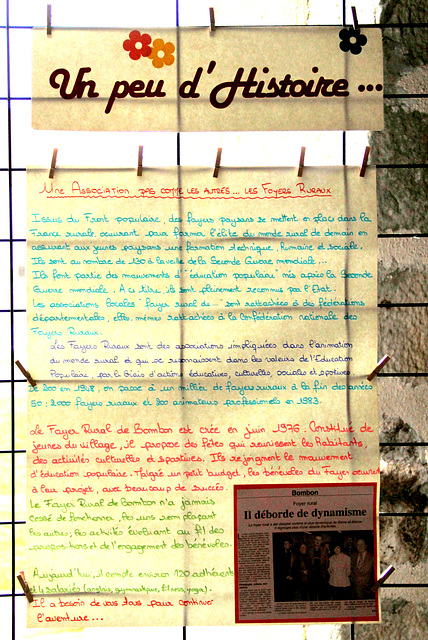 Un peu d'Histoire...
Une Association pas comme les autres... les Foyers Ruraux
Issus du Front populaire, des foyers paysans se mettent en place dans la
France rurale, oeuvrant pour former l'élite du monde rural de demain en
assurant aux jeunes paysans une formation technique, humaine et sociale.
Ils sont au nombre de 130 à la veille de la Seconde Guerre mondiale...
Ils font partie des mouvements d'"éducation populaire" nés après la Seconde
Guerre mondiale. A ce titre, ils sont pleinement reconnus par l'Etat.
Les associations locales "foyer rural de..." sont rattachées à des fédérations
départementales, elles mêmes rattachées à la Confédération nationale des
Foyers Ruraux.
Les Foyers Ruraux sont des associations impliquées dans l'animation
du monde rural et qui se reconnaissent dans les valeurs de l'Education
Populaire, par le biais d'actions éducatives, culturelles, sociales et sportives
De 200 en 1948, on passe à un millier de foyers ruraux à la fin des années
50; 2000 foyers ruraux et 200 animateurs professionnels en 1983.
Le Foyer Rural de Bombon est crée en juin 1976. Constitué de
jeunes du village, il propose des fêtes qui réunissent les habitants,
des activités culturelles et sportives. Ils rejoignent le mouvement
d'éducation populaire. Malgré un petit budget, les bénévoles du Foyer oeuvrent
à leur projet, avec beaucoup de succès.
Le Foyer Rural de Bombon n'a jamais
cessé de fonctionner, les uns remplaçant
les autres, les activités évoluant au fil des
propositions et de l'engagement des bénévoles.
Aujourd'hui, il compte environ 120 adhérents
et 4 salariés (anglais, gymnastique, fitness, yoga).
Il a besoin de vous tous pour continuer
l'aventure...
Bombon
Foyer rural
Il déborde de dynamisme